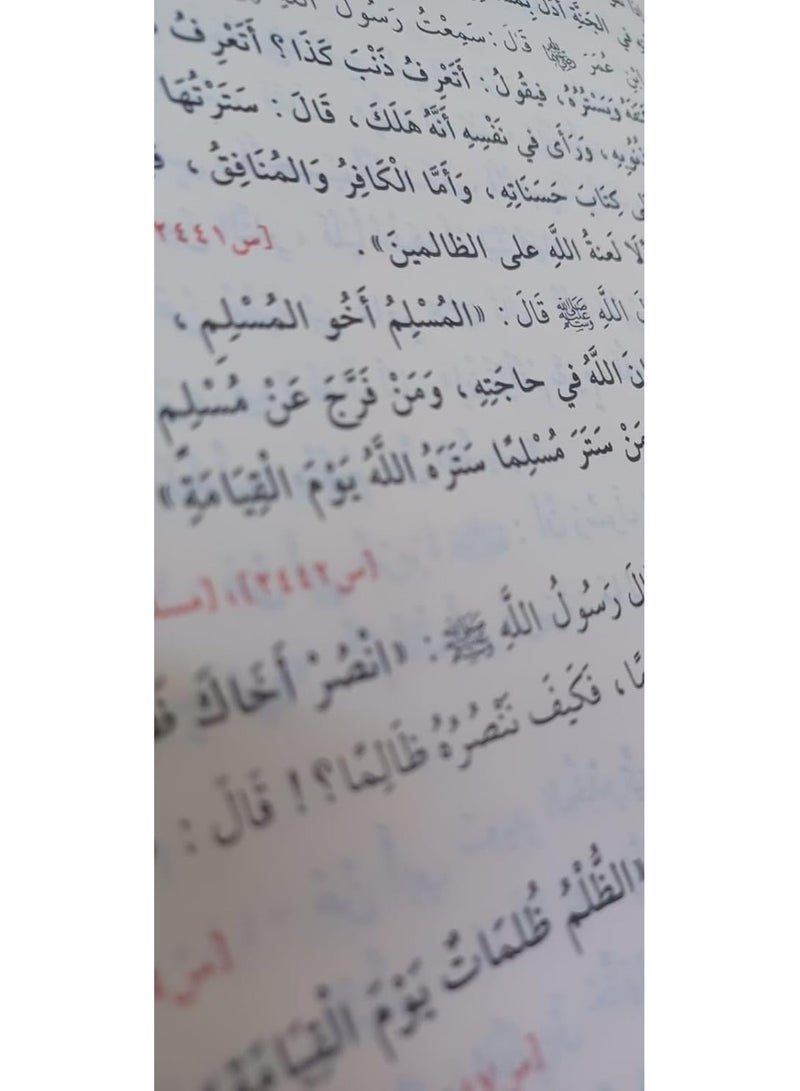 في الجنَّةِ أَدَلُّ
عُمَرَ ﷺ قَالَ: سَمِعْتُ رَسُولَ
وَيَسْتُرُهُ، فيقُولُ: أَتَعْرِفُ ذَنْبَ كَذَا؟ أَتَعْرِفُ
وَرَأَى في نَفْسِهِ أَنَّهُ هَلَكَ، قَالَ: سَتَرْتُهَا
كِتَابَ حَسَنَاتِهِ، وَأَمَّا الْكَافِرُ وَالمُنَافِقُ،
لَعنةُ اللَّهِ على الظالمينَ». [س٢٤٤١
اللَّهِ ﷺ قَالَ: «المُسْلِمُ أَخُو المُسْلِمِ،
اللَّهُ في حاجَتِهِ، وَمَنْ فَرَّجَ عَنْ مُسْلِمٍ
سَتَرَ مُسْلِمًا سَتَرَهُ اللَّهُ يَوْمَ الْقِيَامَةِ»
[س٢٤٤٢]،
رَسُولُ اللَّهِ ﷺ: «انْصُرْ أَخَاكَ
فَكَيفَ نَنْصُرُهُ ظَالِمًا؟! قَالَ:
[س
«الظُّلْمُ ظُلمَاتٌ يَوْمَ الْقِيَامَةِ